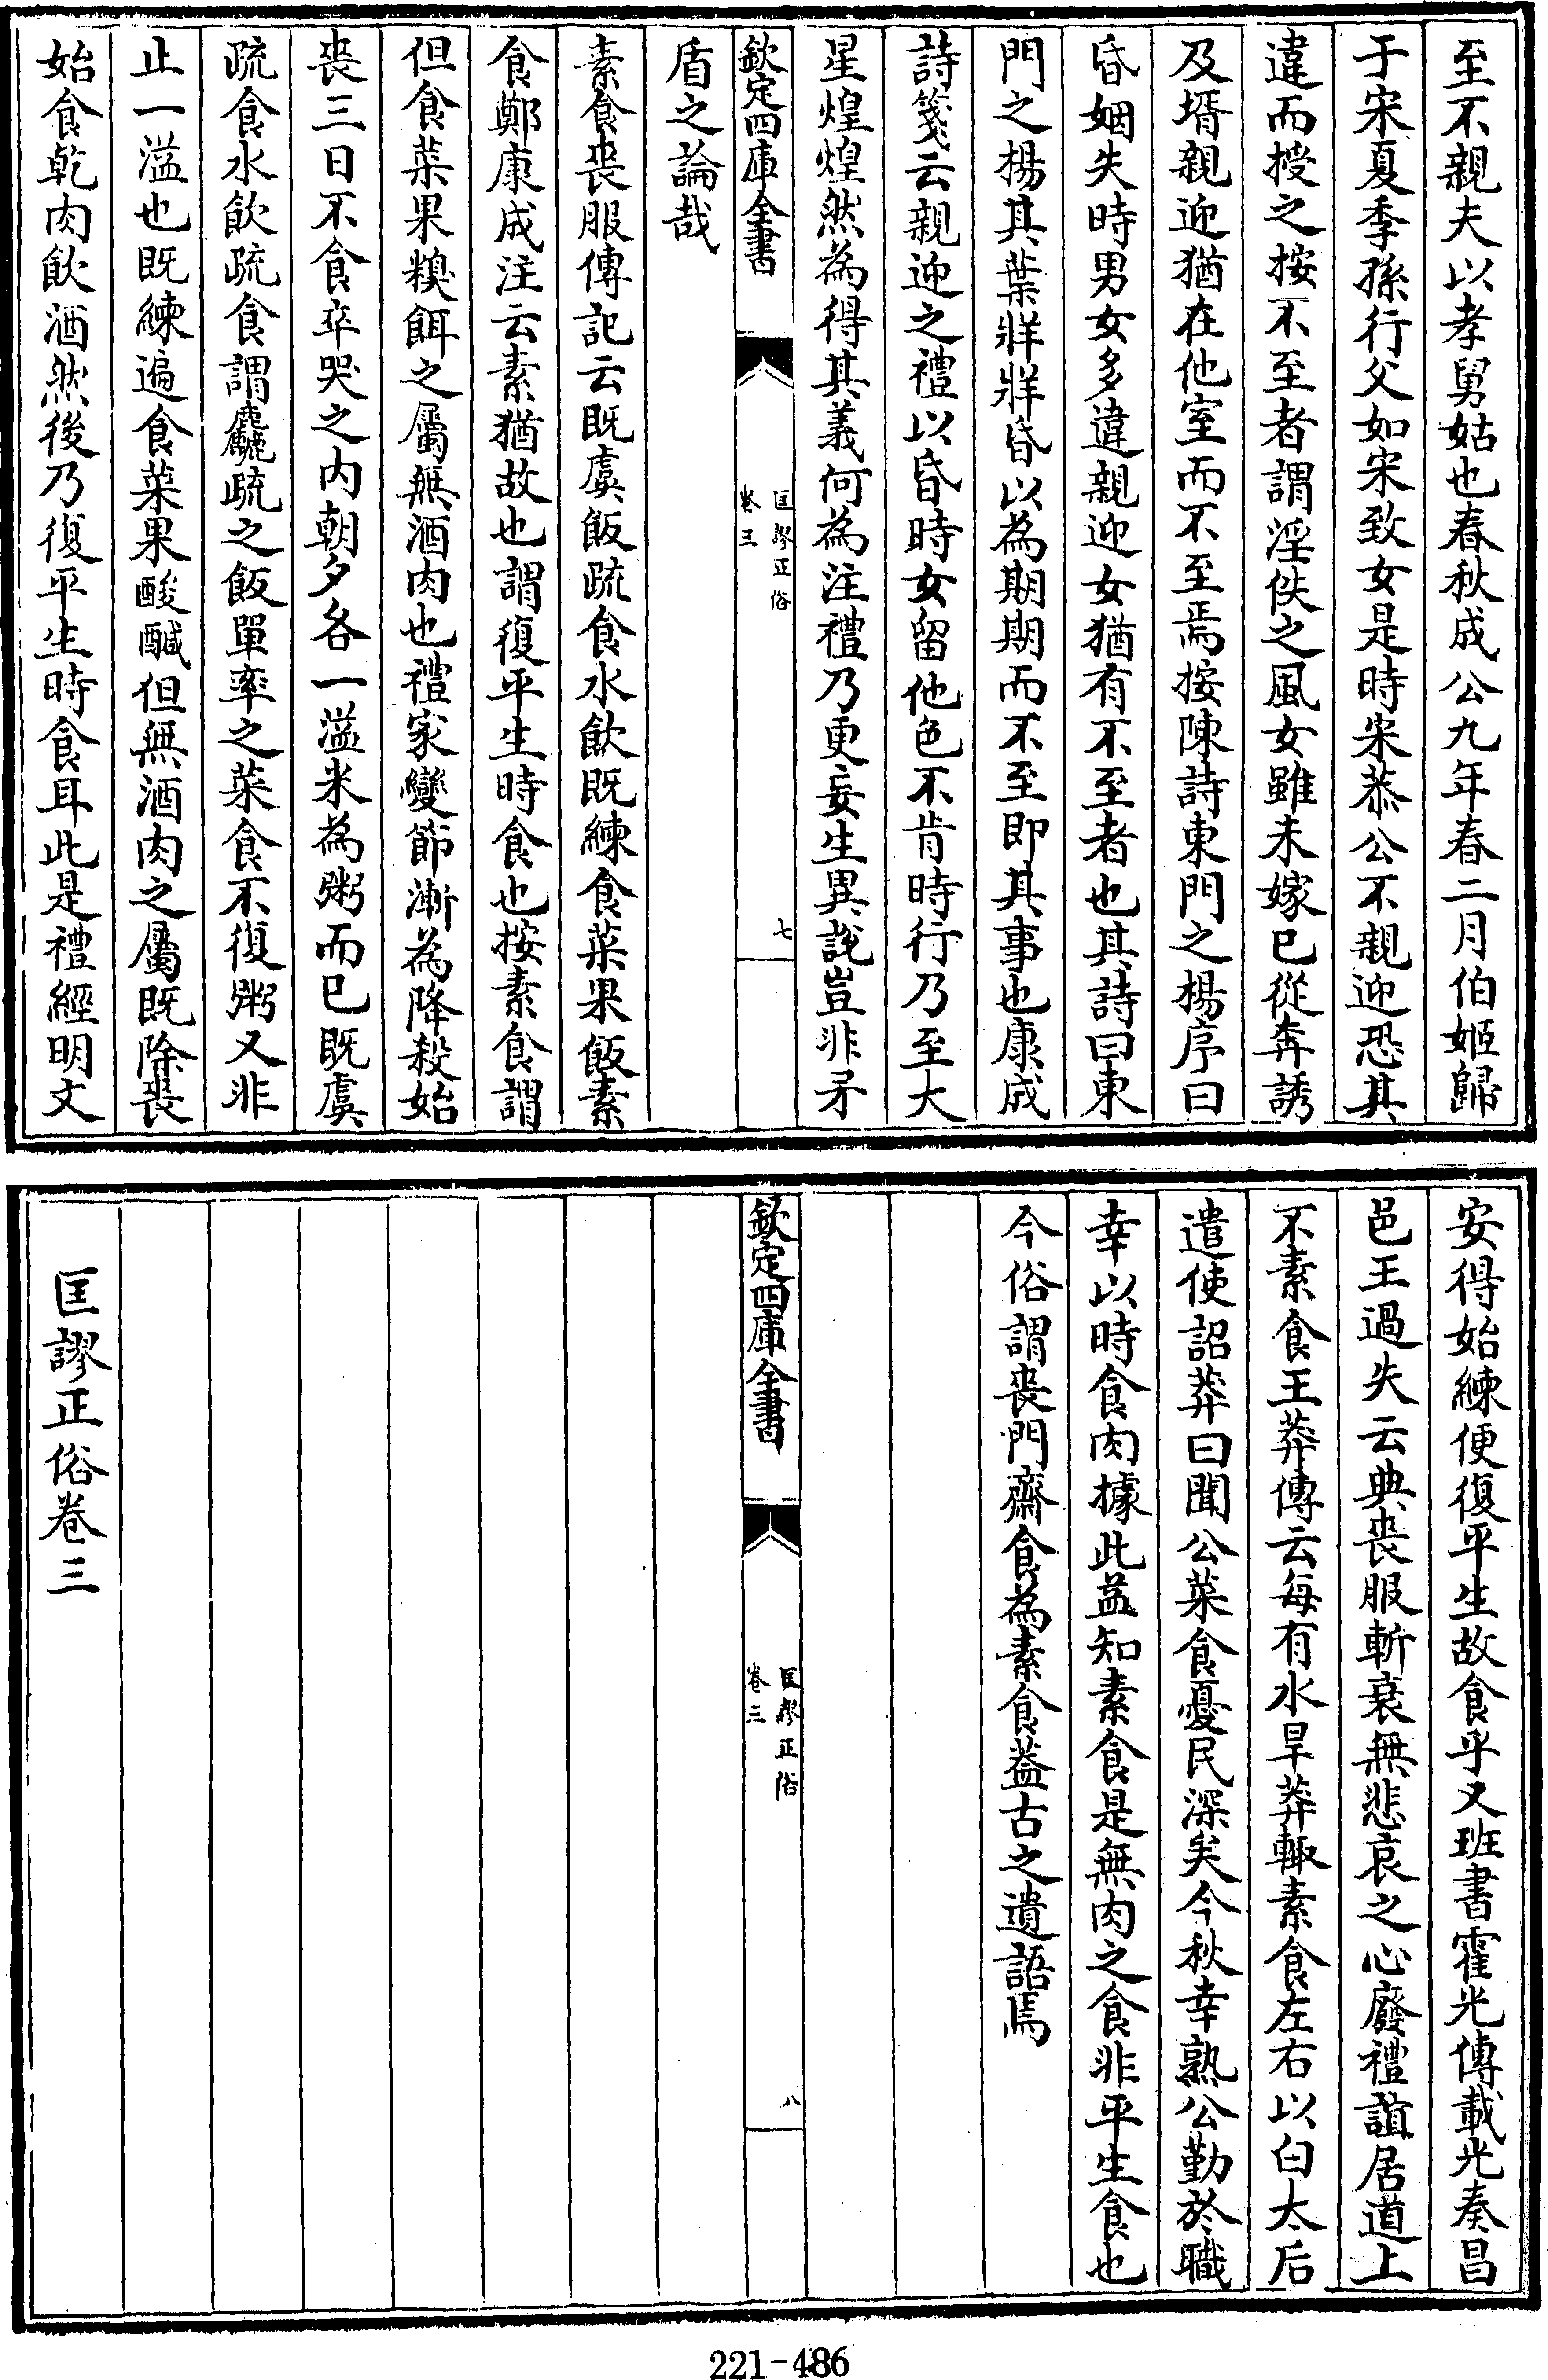 至不親夫以孝舅姑也春秋成公九年春二月伯姬歸
于宋夏季孫行父如宋致女是時宋恭公不親迎恐其
違而授之按不至者謂淫佚之風女雖未嫁已從奔誘
及壻親迎猶在他室而不至焉按陳詩東門之楊序曰
昏姻失時男女多違親迎女猶有不至者也其詩曰東
門之楊其葉牂牂昏以為期期而不至即其事也康成
詩箋云親迎之禮以昏時女留他色不肯時行乃至大
星煌煌然為得其義何為注禮乃更妄生異說豈非矛
欽定四庫全書
匡謬正俗
卷三
七
盾之論哉
素食喪服傳記云既虞飯疏食水飲既練食菜果飯素
食鄭康成注云素猶故也謂復平生時食也按素食謂
但食菜果糗餌之屬無酒肉也禮家變節漸為降殺始
喪三日不食卒哭之内朝夕各一溢米為粥而已既虞
疏食水飲疏食謂麤疏之飯單率之菜食不復粥又非
止一溢也既練遍食菜果酸醎但無酒肉之屬既除喪
始食乾肉飲酒然後乃復平生時食耳此是禮經明文
安得始練便復平生故食乎又班書霍光傳載光奏昌
邑王過失云典喪服斬衰無悲哀之心廢禮誼居道上
不素食王莽傳云每有水旱莽輒素食左右以白太后
遣使詔莽曰聞公菜食憂民深矣今秋幸熟公勤於職
幸以時食肉據此益知素食是無肉之食非平生食也
今俗謂喪門齋食為素食蓋古之遺語焉
欽定四庫全書
匡謬正俗
卷三
八
匡謬正俗卷三
221-486